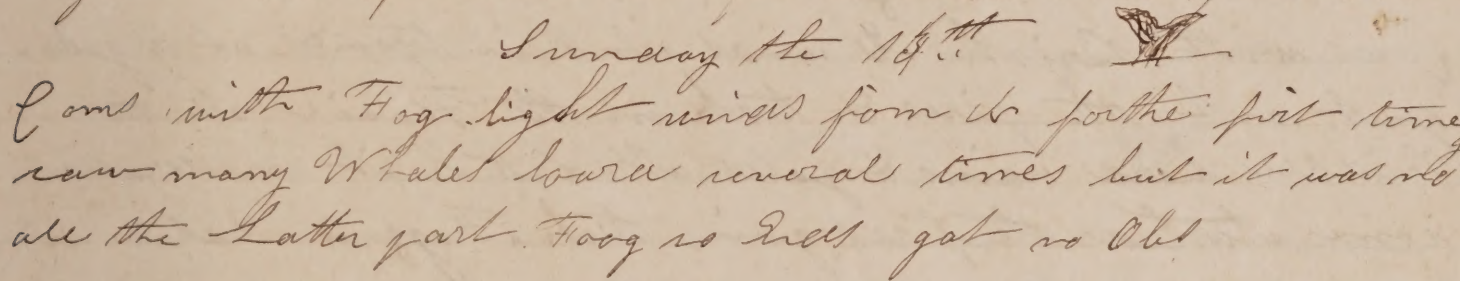 Sunday the 18th
Coms with Fog light winds from W for the first time
saw many Whales loward several times but it was no
ale the Latter part Foog so Ends got no Obs